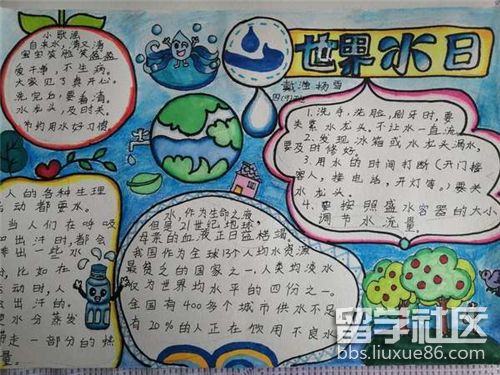 世界水日
小歌谣
自来水,清又清
爱干净,不生病。
大家记了真开心。
洗完后,要看清。
水龙头,及时关。
节约用水好习惯
1.洗手、洗脸,刷牙时,要
关紧水龙头。不让水一直流
2.发现冰箱或水龙头漏水,
要及时修好。
3.用水的时间打断(开门接
客人,接电话,开灯等,)要关
水龙头。
4.要按照盛水容器的大小
调节水流量。
人的各种生理
活动都要水。
当人们在呼吸
和出汗时都会
排出一些水
比如在
运动时,人
出汗的。
水分蒸发
带走一部分的热
量。
水,作为生命之液
但是21世纪地球,
母亲的血液正日益枯竭
我国作为全球13个人均水资源
最贫乏的国家之一,人类均淡水
仅为世界均水平的四份之一,
全国有400多个城市供水不足
有20%的人正在饮用不良水
留学社区
bbs.liuxue86.com